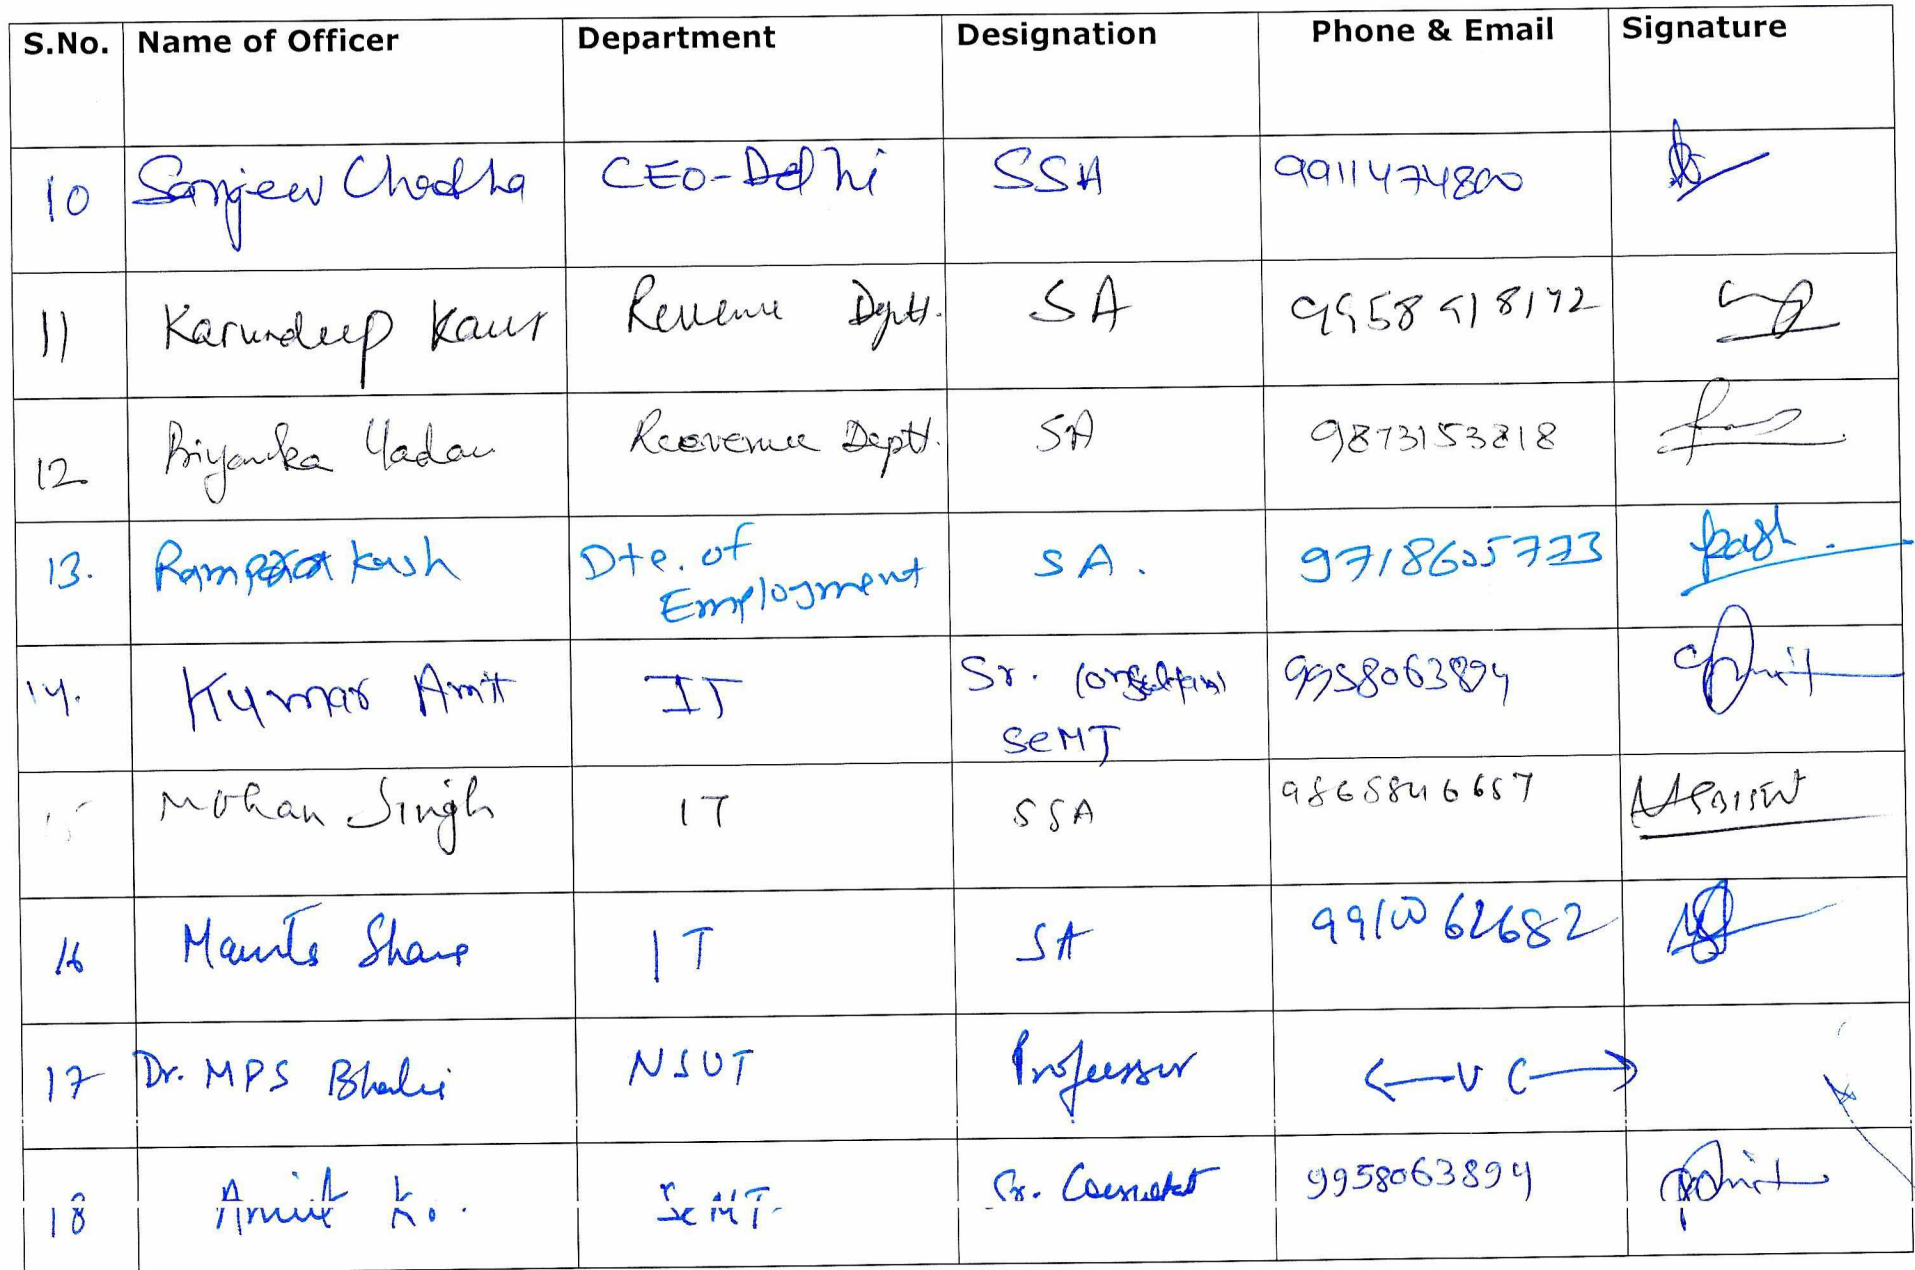 S.No. Name of Officer Department Designation Phone & Email Signature
10 Sanjeev Chadha CEO-Delhi SSA 9911474800
11 Karundeep Kaur Revenue Deptt. SA
12 Priyanka Yadav Reevenue Deptt. SA 9873153818
13. Ram kash Dte. of Employment SA. 9718605773
14. Kumar Amit IT Sr. SeMT 9958063894 Amit
15 Mohan Singh IT SSA 9868846657
16 IT SA 9910062682
17 Dr. MPS NSUT Professor VC
18 Amit K. SeMT Sr. 9958063894 Amit